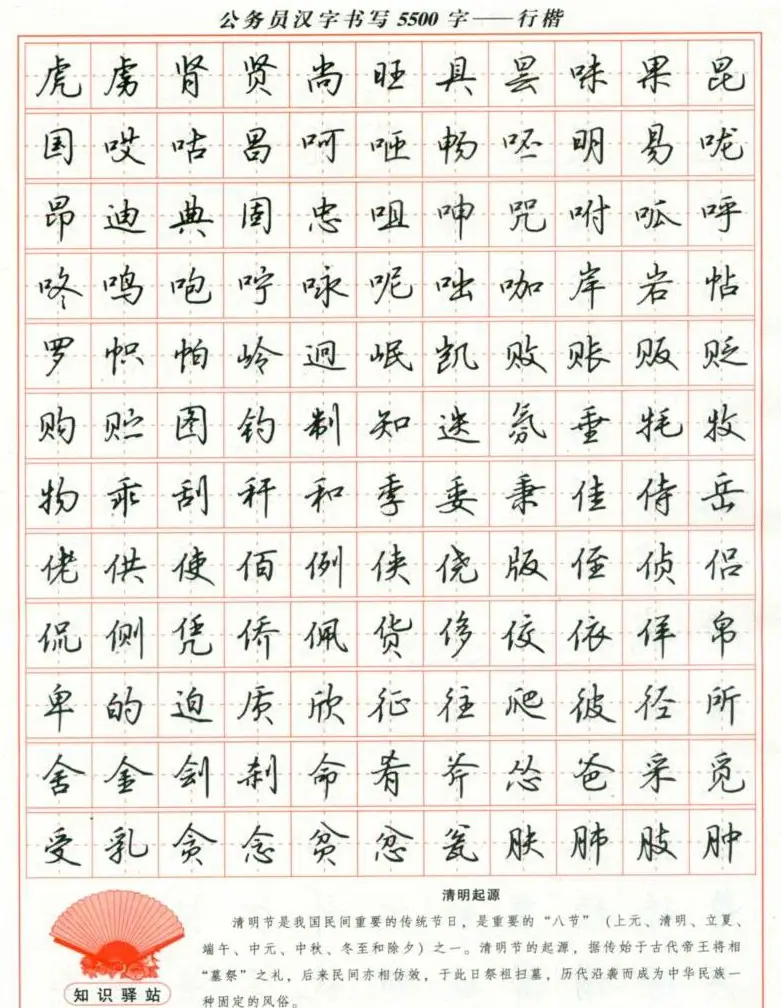 公务员汉字书写5500字——行楷
虎虏肾贤尚旺具昙味果昆
国哎咕昌呵咂畅呸明易咙
昂迪典固忠咀呻咒咐呱呼
咚鸣咆咛咏呢咄咖岸岩帖
罗帜帕岭迥岷凯败账贩贬
购贮图钓制知迭氛垂牦牧
物乖刮秆和季委秉佳侍岳
佬供使佰例侠侥版侄侦侣
侃侧凭侨佩货侈佼依佯帛
卑的迫质欣征往爬彼径所
舍金刽刹命肴斧怂爸采觅
受乳贪念贫忿瓮肤肺肢肿
清明起源
清明节是我国民间重要的传统节日，是重要的“八节”（上元、清明、立夏、
端午、中元、中秋、冬至和除夕）之一。清明节的起源，据传始于古代帝王将相
“墓祭”之礼，后来民间亦相仿效，于此日祭祖扫墓，历代沿袭而成为中华民族一
种固定的风俗。
知识驿站